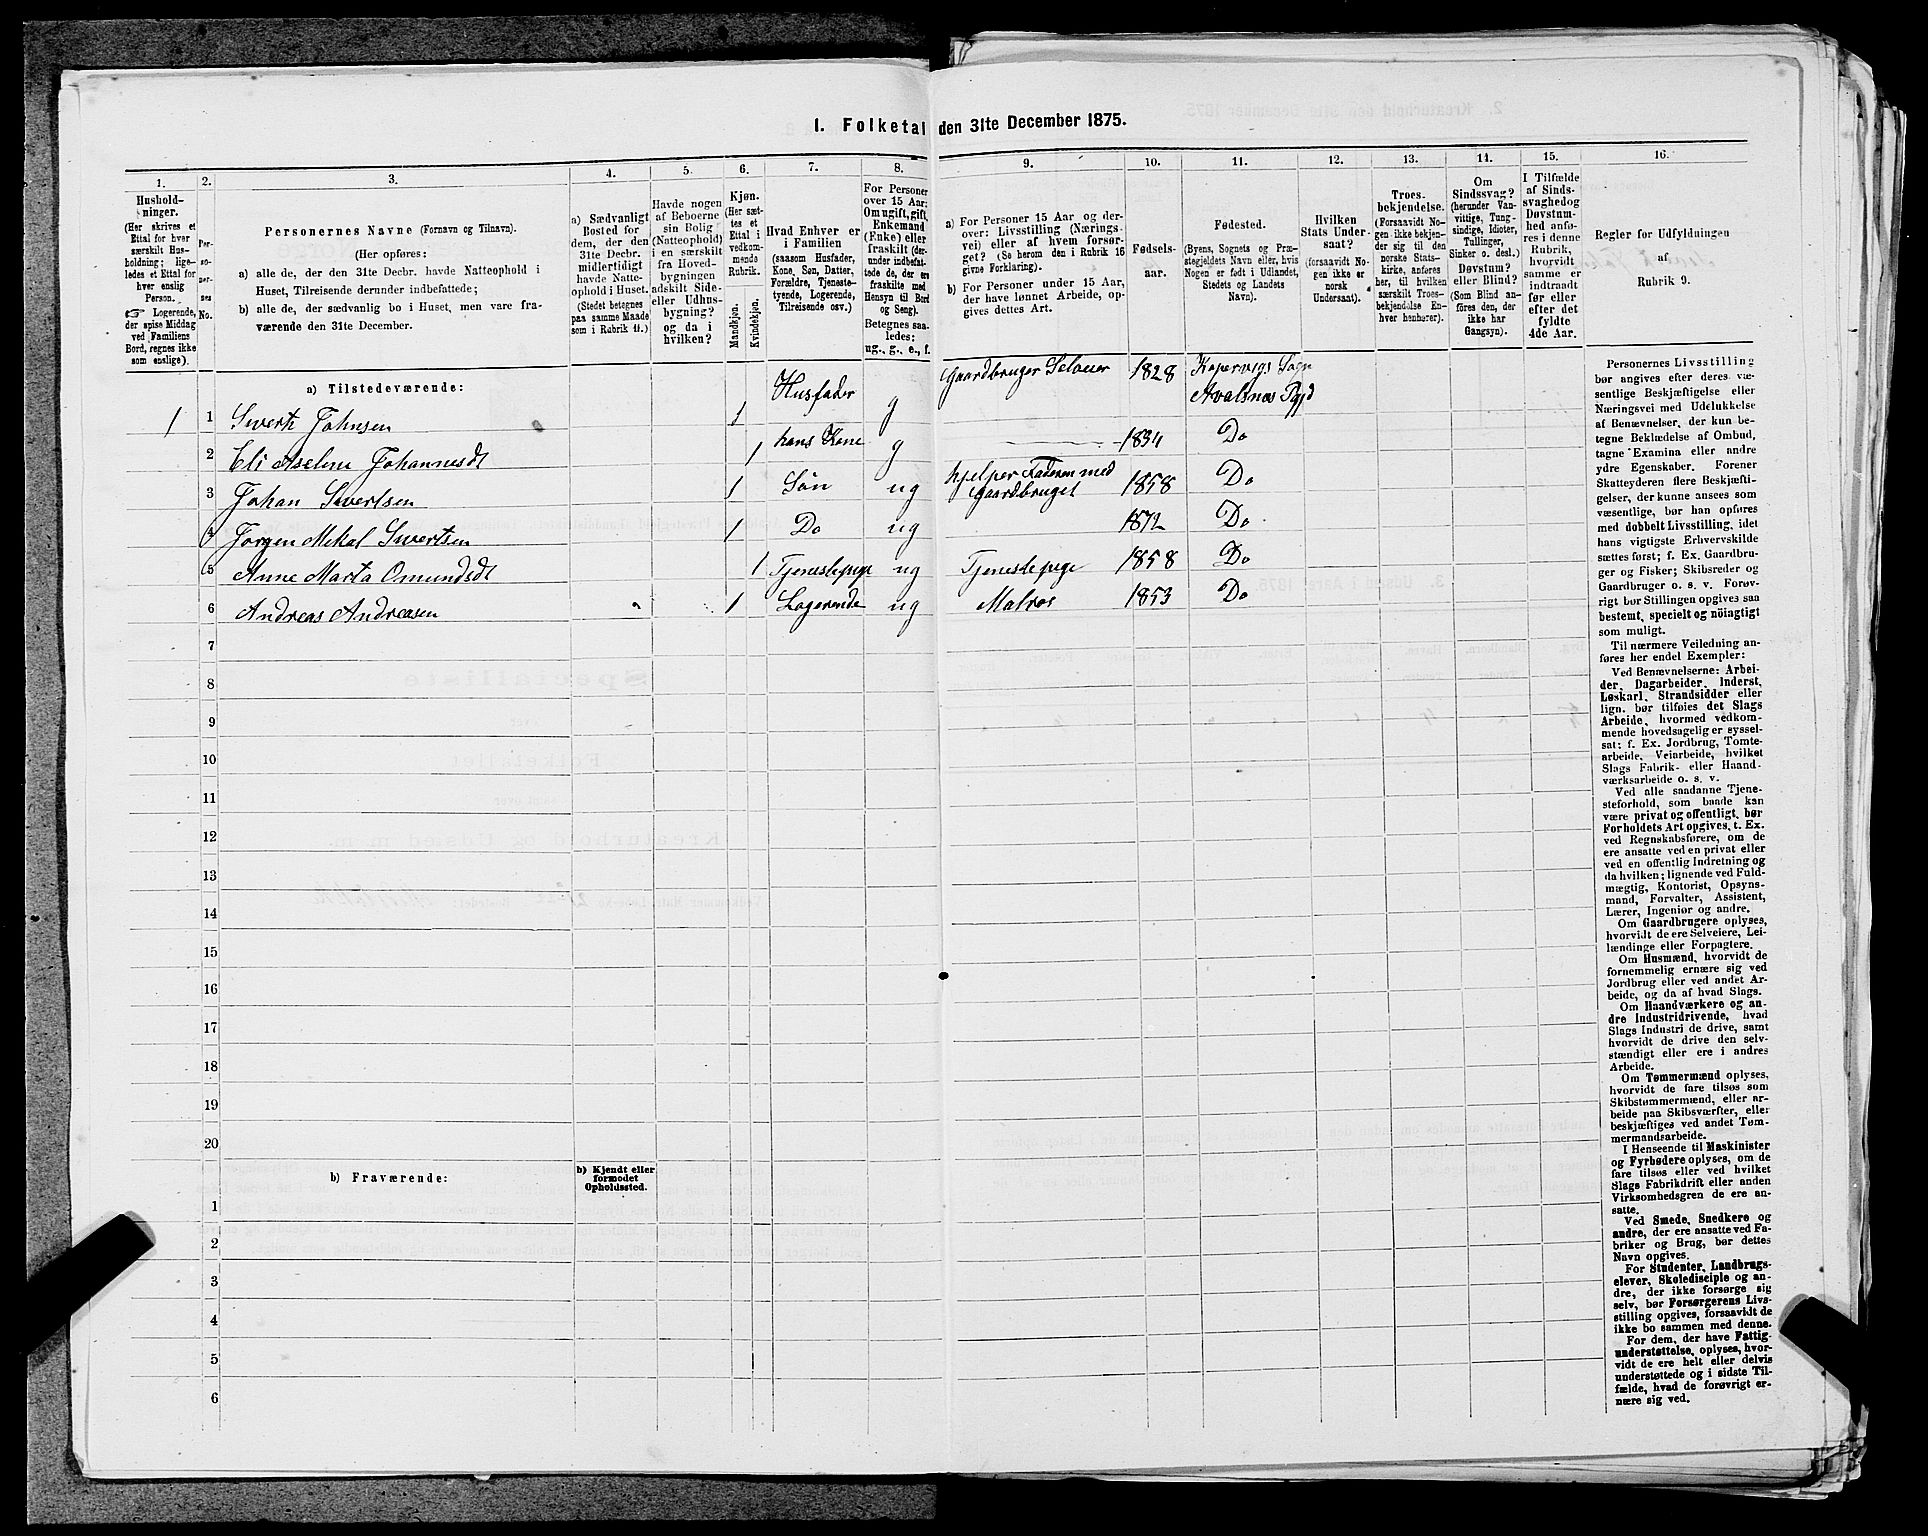 I. Folketal den 31te December 1875.
1.
2.
3.
4.
5.
6.
7.
8.
9.
10.
11.
12.
13.
14.
15.
16.
Hushold-
ninger.
(Her skrives et
Ettal for hver
særskilt Hus-
holdning; lige-
ledes et Ettal for
hver enslig
Person.
☞ Logerende,
der spise Middag
ved Familiens
Bord, regnes ikke
som enslige).
Per-
so-
ner-
nes
No.
Personernes Navne (Fornavn og Tilnavn).
(Her opføres:
a) alle de, der den 31te Decbr. havde Natteophold i
Huset, Tilreisende derunder indbefattede;
b) alle de, der sædvanlig bo i Huset, men vare fra-
værende den 31te December.
a) Sædvanligt
Bosted for
dem, der den
31te Decbr.
midlertidigt
havde Natte-
ophold i Huset.
(Stedet betegnes
paa samme Maade
som i Rubrik 11.)
Havde nogen
af Beboerne
sin Bolig
(Natteophold)
i en særskilt
fra Hoved-
bygningen
adskilt Side-
eller Udhus-
bygning?
og da i
hvilken?
Kjøn.
(Her sæt-
tes et
Ettal i
vedkom-
mende
Rubrik.
Mandkjøn.
Kvindekjøn.
Hvad Enhver er
i Familien
(saasom Husfader,
Kone, Søn, Datter,
Forældre, Tjeneste-
tyende, Logerende,
Tilreisende osv.)
For Personer
over 15 Aar:
Om ugift, gift,
Enkemand
(Enke) eller
fraskilt (der-
under indbefat-
tede de, der ere
fraskilte med
Hensyn til Bord
og Seng).
Betegnes saa-
ledes:
ug., g., e., f.
a) For Personer 15 Aar og der-
over: Livsstilling (Nærings-
vei) eller af hvem forsør-
get? (Se herom den i Rubrik 16
givne Forklaring).
b) For Personer under 15 Aar,
der have lønnet Arbeide, op-
gives dettes Art.
Fødsels-
aar.
Fødested.
(Byens, Sognets og Præ-
stegjeldets Navn eller, hvis
Nogen er født i Udlandet,
Stedets og Landets
Navn).
Hvilken
Stats Under-
saat?
(forsaavidt No-
gen ikke er
norsk
Undersaat).
Troes-
bekjendelse.
(Forsaavidt No-
gen ikke bekjen-
der sig til den
norske Stats-
kirke, anføres
her, til hvilken
særskilt Troes-
bekjendelse En-
hver henhører).
Om
Sindssvag?
(herunder Van-
vittige, Tung-
sindige, Idioter,
Tullinger,
Sinker o. desl.)
Døvstum?
eller Blind?
(Som Blind an-
føres den, der
ikke har
Gangsyn).
I Tilfælde
af Sinds-
svaghed og
Døvstum-
hed anfø-
res i denne
Rubrik,
hvorvidt
samme er
indtraadt
før eller
efter det
fyldte
4de Aar.
Regler for Udfyldningen
af
Rubrik 9.
a) Tilstedeværende:
1 1 Sivert Johnsen 1 Husfader g Gaardbruger Selouer 1828 Kopervigs Sogn Avalsnes Pgjd
2 Eli Aselene Johannesdt 1 hans Kone g 1834 Do
3 Johan Sivertsen 1 Søn ug hjelper Faderen med Gaardbruget 1858 Do
4 Jørgen Mikal Sivertsen 1 Do ug 1872 Do
5 Anne Marta Omundsdt 1 Tjenestepige ug Tjenestepige 1858 Do
6 Andreas Andreasen 1 Logerende ug Matros 1853 Do
7
8
9
10
11
12
13
14
15
16
17
18
19
20
b) Fraværende:
b) Kjendt eller
formodet
Opholdssted.
1
2
3
4
5
6
Personernes Livsstilling
bør angives efter deres væ-
sentlige Beskjæftigelse eller
Næringsvei med Udelukkelse
af Benævnelser, der kun be-
tegne Beklædelse af Ombud,
tagne Examina eller andre
ydre Egenskaber. Forener
Skatteyderen flere Beskjæfti-
gelser, der kunne ansees som
væsentlige, bør han opføres
med dobbelt Livsstilling, idet
hans vigtigste Erhvervskilde
sættes først; f. Ex. Gaardbru-
ger og Fisker; Skibsreder og
Gaardbruger o. s. v. Forøv-
rigt bør Stillingen opgives saa
bestemt, specielt og nøiagtigt
som muligt.
Til nærmere Veiledning an-
føres her endel Exempler:
Ved Benævnelserne: Arbei-
der, Dagarbeider, Inderst,
Løskarl, Strandsidder eller
lign. bør tilføies det Slags
Arbeide, hvormed vedkom-
mende hovedsagelig er syssel-
sat; f. Ex. Jordbrug, Tomte-
arbeide, Veiarbeide, hvilket
Slags Fabrik- eller Haand-
værksarbeide o. s. v.
Ved alle saadanne Tjene-
steforhold, som baade kan
være privat og offentligt, bør
Forholdets Art opgives, t. Ex.
ved Regnskabsførere, om de
ere ansatte ved en privat eller
ved en offentlig Indretning og
da hvilken; lignende ved Fuld-
mægtig, Kontorist, Opsyns-
mand, Forvalter, Assistent,
Lærer, Ingeniør og andre.
Om Gaardbrugere oplyses,
hvorvidt de ere Selveiere, Lei-
lændinge eller Forpagtere.
Om Husmænd, hvorvidt de
fornemmelig ernære sig ved
Jordbrug eller ved andet Ar-
beide, og da af hvad Slags.
Om Haandværkere og an-
dre Industridrivende, hvad
Slags Industri de drive, samt
hvorvidt de drive den selv-
stændigt eller ere i andres
Arbeide.
Om Tømmermænd oplyses,
hvorvidt de fare tilsøs som
Skibstømmermænd, eller ar-
beide paa Skibsværfter, eller
beskjæftiges ved andet Tøm-
mermandsarbeide.
I Henseende til Maskinister
og Fyrbødere oplyses, om de
fare tilsøs eller ved hvilket
Slags Fabrikdrift eller anden
Virksomhedsgren de ere an-
satte.
Ved Smede, Snedkere og
andre, der ere ansatte ved Fa-
briker og Brug, bør dettes
Navn opgives.
For Studenter, Landbrugs-
elever, Skoledisciple og an-
dre, der ikke forsørge sig
selv, bør Forsørgerens Livs-
stilling opgives, forsaavidt de
ikke bo sammen med denne.
For dem, der have Fattig-
understøttelse, oplyses, hvor-
vidt de ere helt eller delvis
understøttede og i sidste Til-
fælde, hvad de forøvrigt er-
nære sig ved.